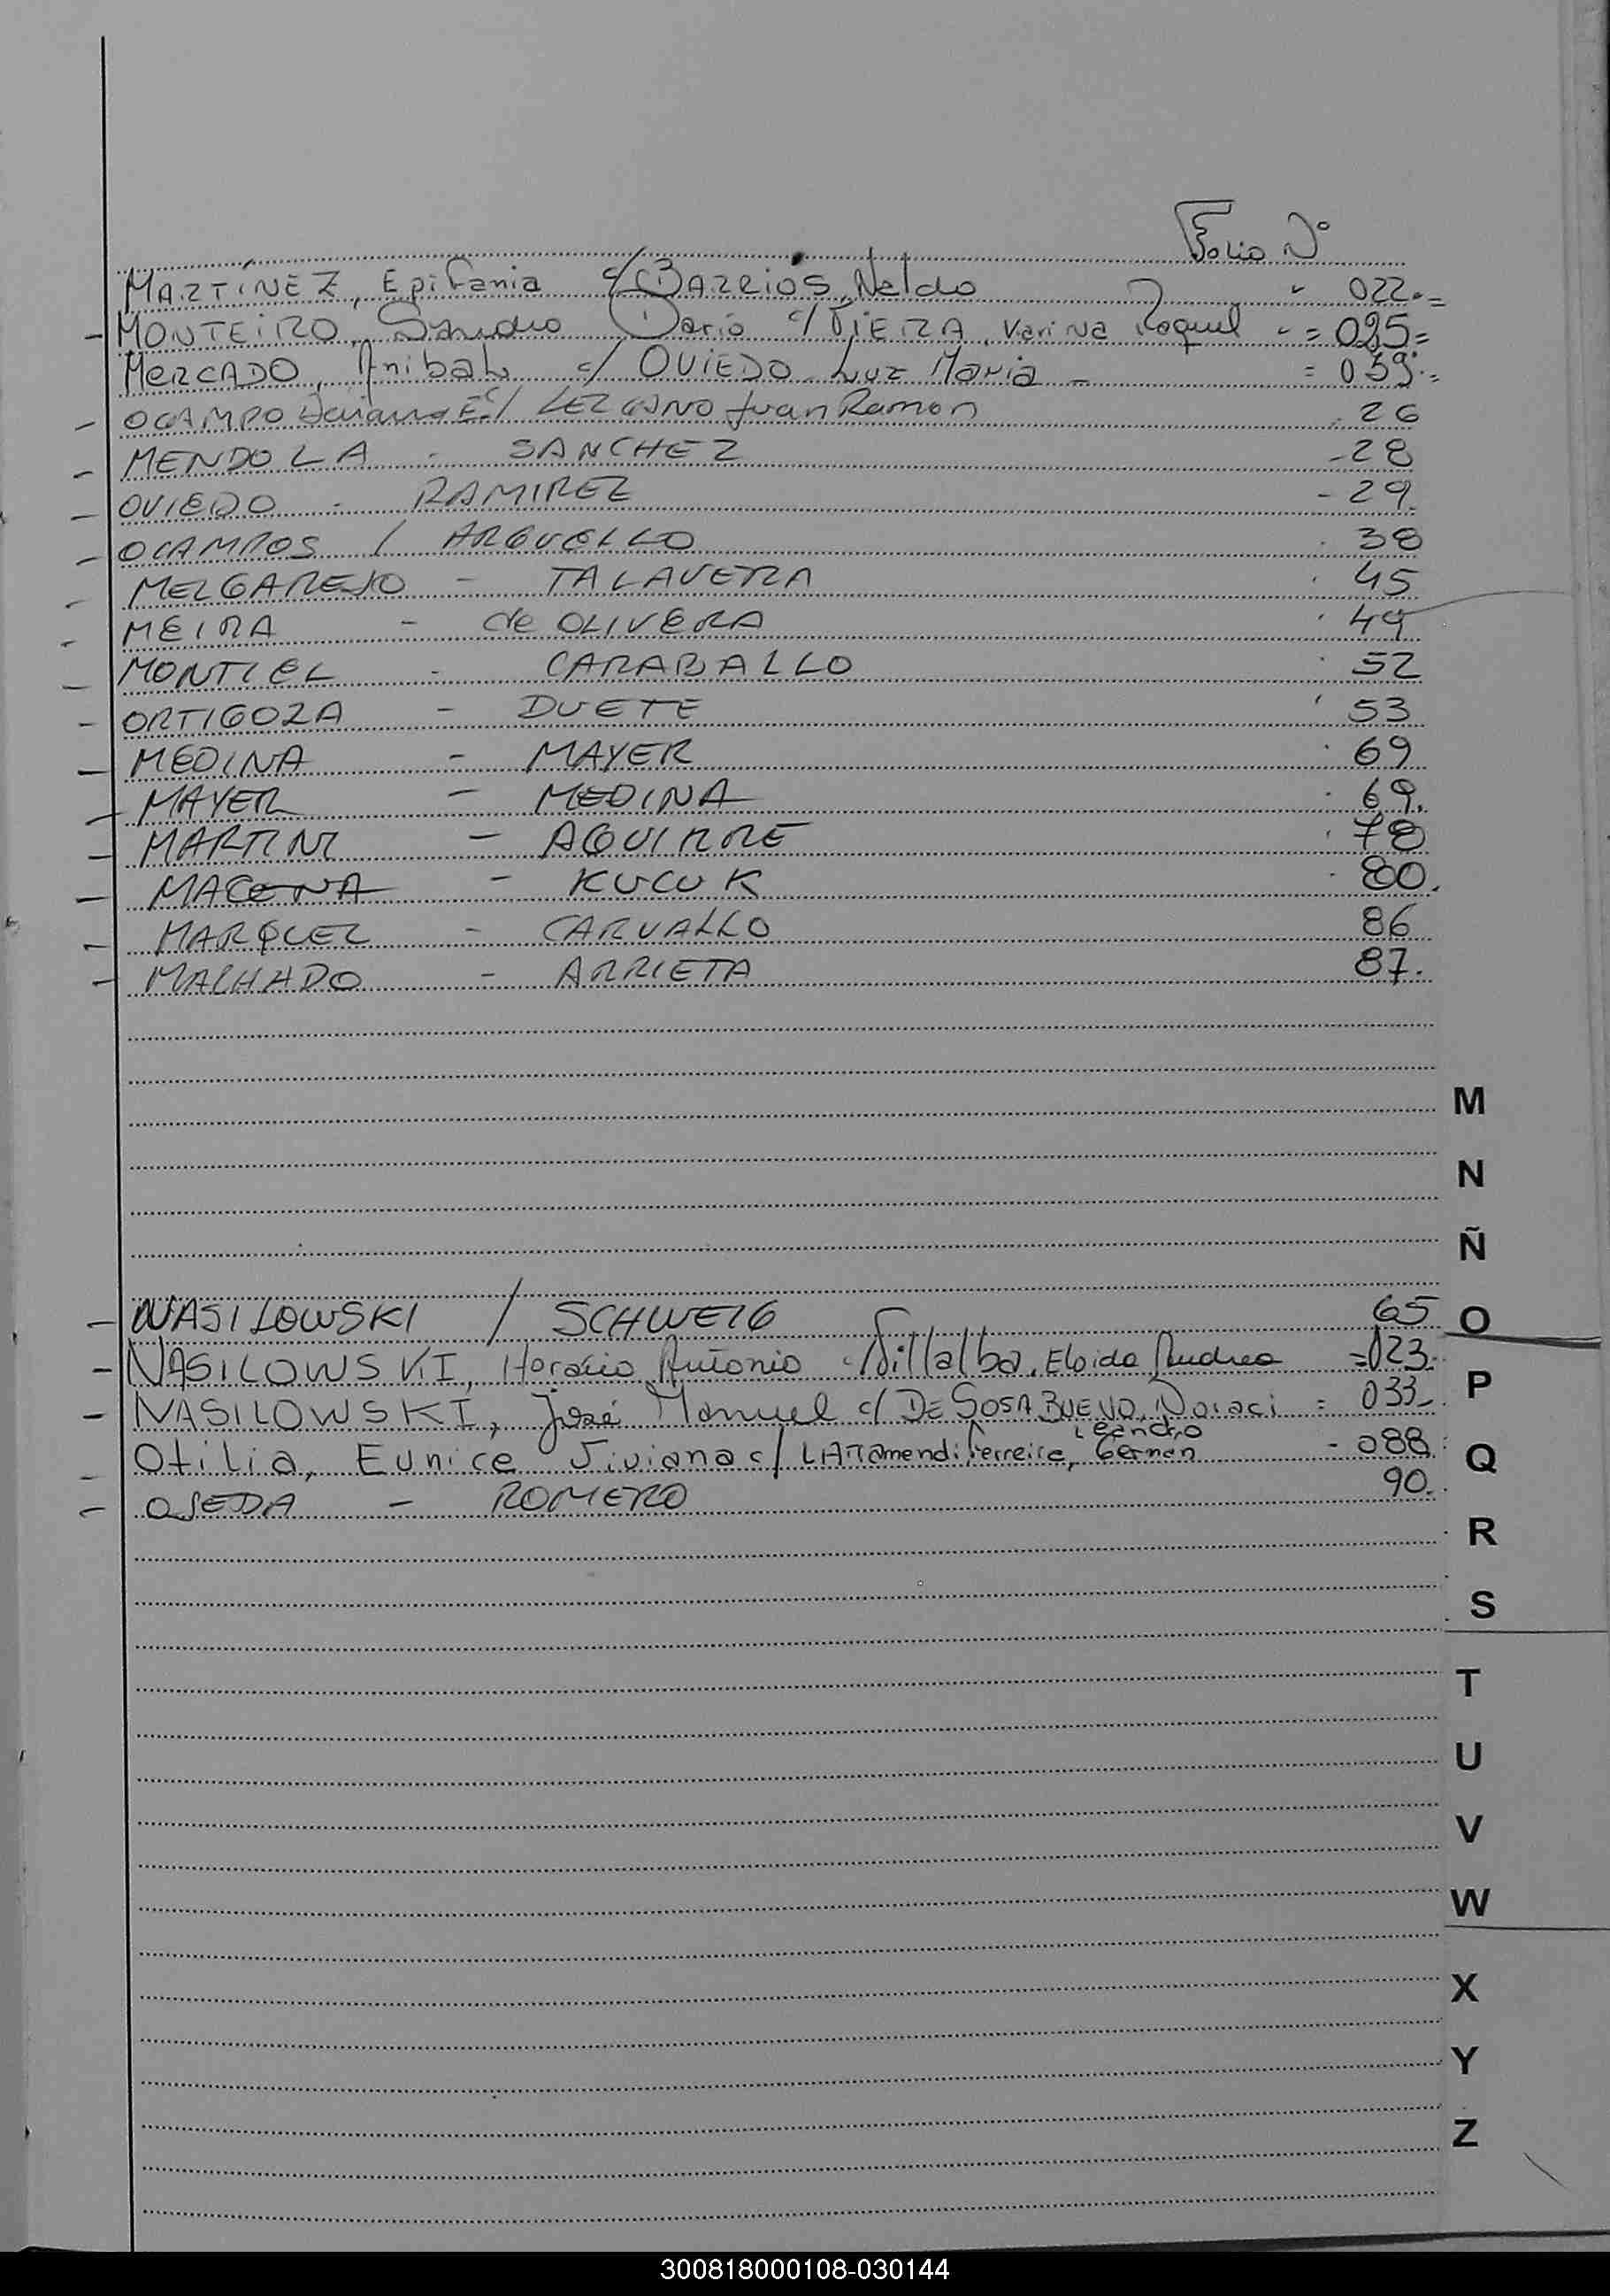 Folio Nº
MARTÍNEZ, Epifania c/ BARRIOS, Neldo " 022.=
- MONTEIRO, Sandro Dario c/ VIEIRA, Karina Raquel " = 025=
MERCADO, Anibal c/ OVIEDO Luz Maria - = 039.=
- OCAMPO E. c/ LEZCANO Juan Ramon 26
- MENDOLA - SANCHEZ - 28
- OVIEDO - RAMIREZ - 29
- OCAMPOS / ARGUELLO 38
- MELGAREJO - TALAVERA 45
- MEIRA - de OLIVERA 49
- MONTIEL - CARABALLO 52
- ORTIGOZA - DUETE 53
- MEDINA - MAYER 69
- MAYER - MEDINA 69.
- MARTINI - AGUIRRE 78
- MACENA - KUCUK 80.
- MARQUEZ - CARVALLO 86
- MACHADO - ARRIETA 87.
M
N
Ñ
- WASILOWSKI / SCHWEIG 65
O
- NASILOWSKI, Horacio Antonio c/ Villalba, Eloida Andrea =023.
P
- NASILOWSKI, José Manuel c/ DE SOSA BUENO, Noraci = 033-
Leandro
- Otilia, Eunice Viviana c/ LARRamendi Ferreira, German - 088.
Q
- OJEDA - ROMERO 90.
R
S
T
U
V
W
X
Y
Z
300818000108-030144